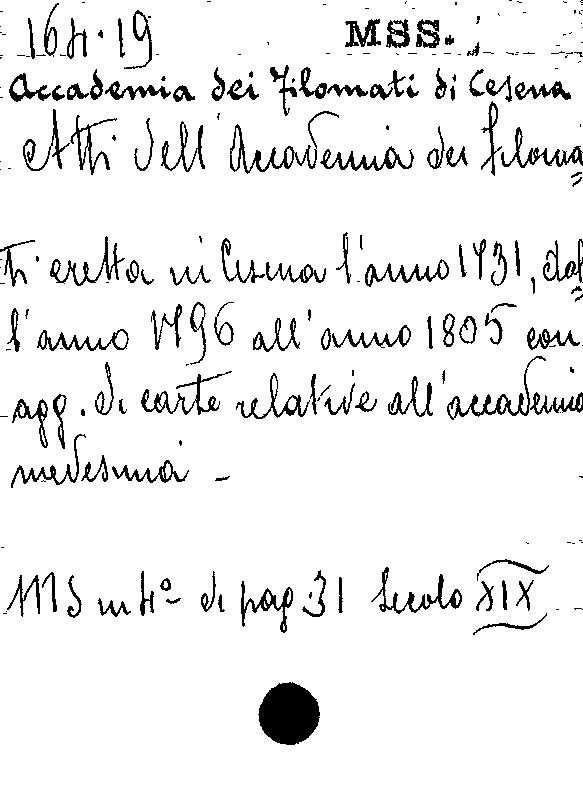 164.19 MSS.
Accademia dei Filomati di Cesena
Atti dell'Accademia dei filoma
ti eretta in Cesena l'anno 1731, dal
l'anno 1796 all'anno 1805 con
agg. di carte relative all'accademia
medesima -
MS in 4º di pag. 31 Secolo XIX